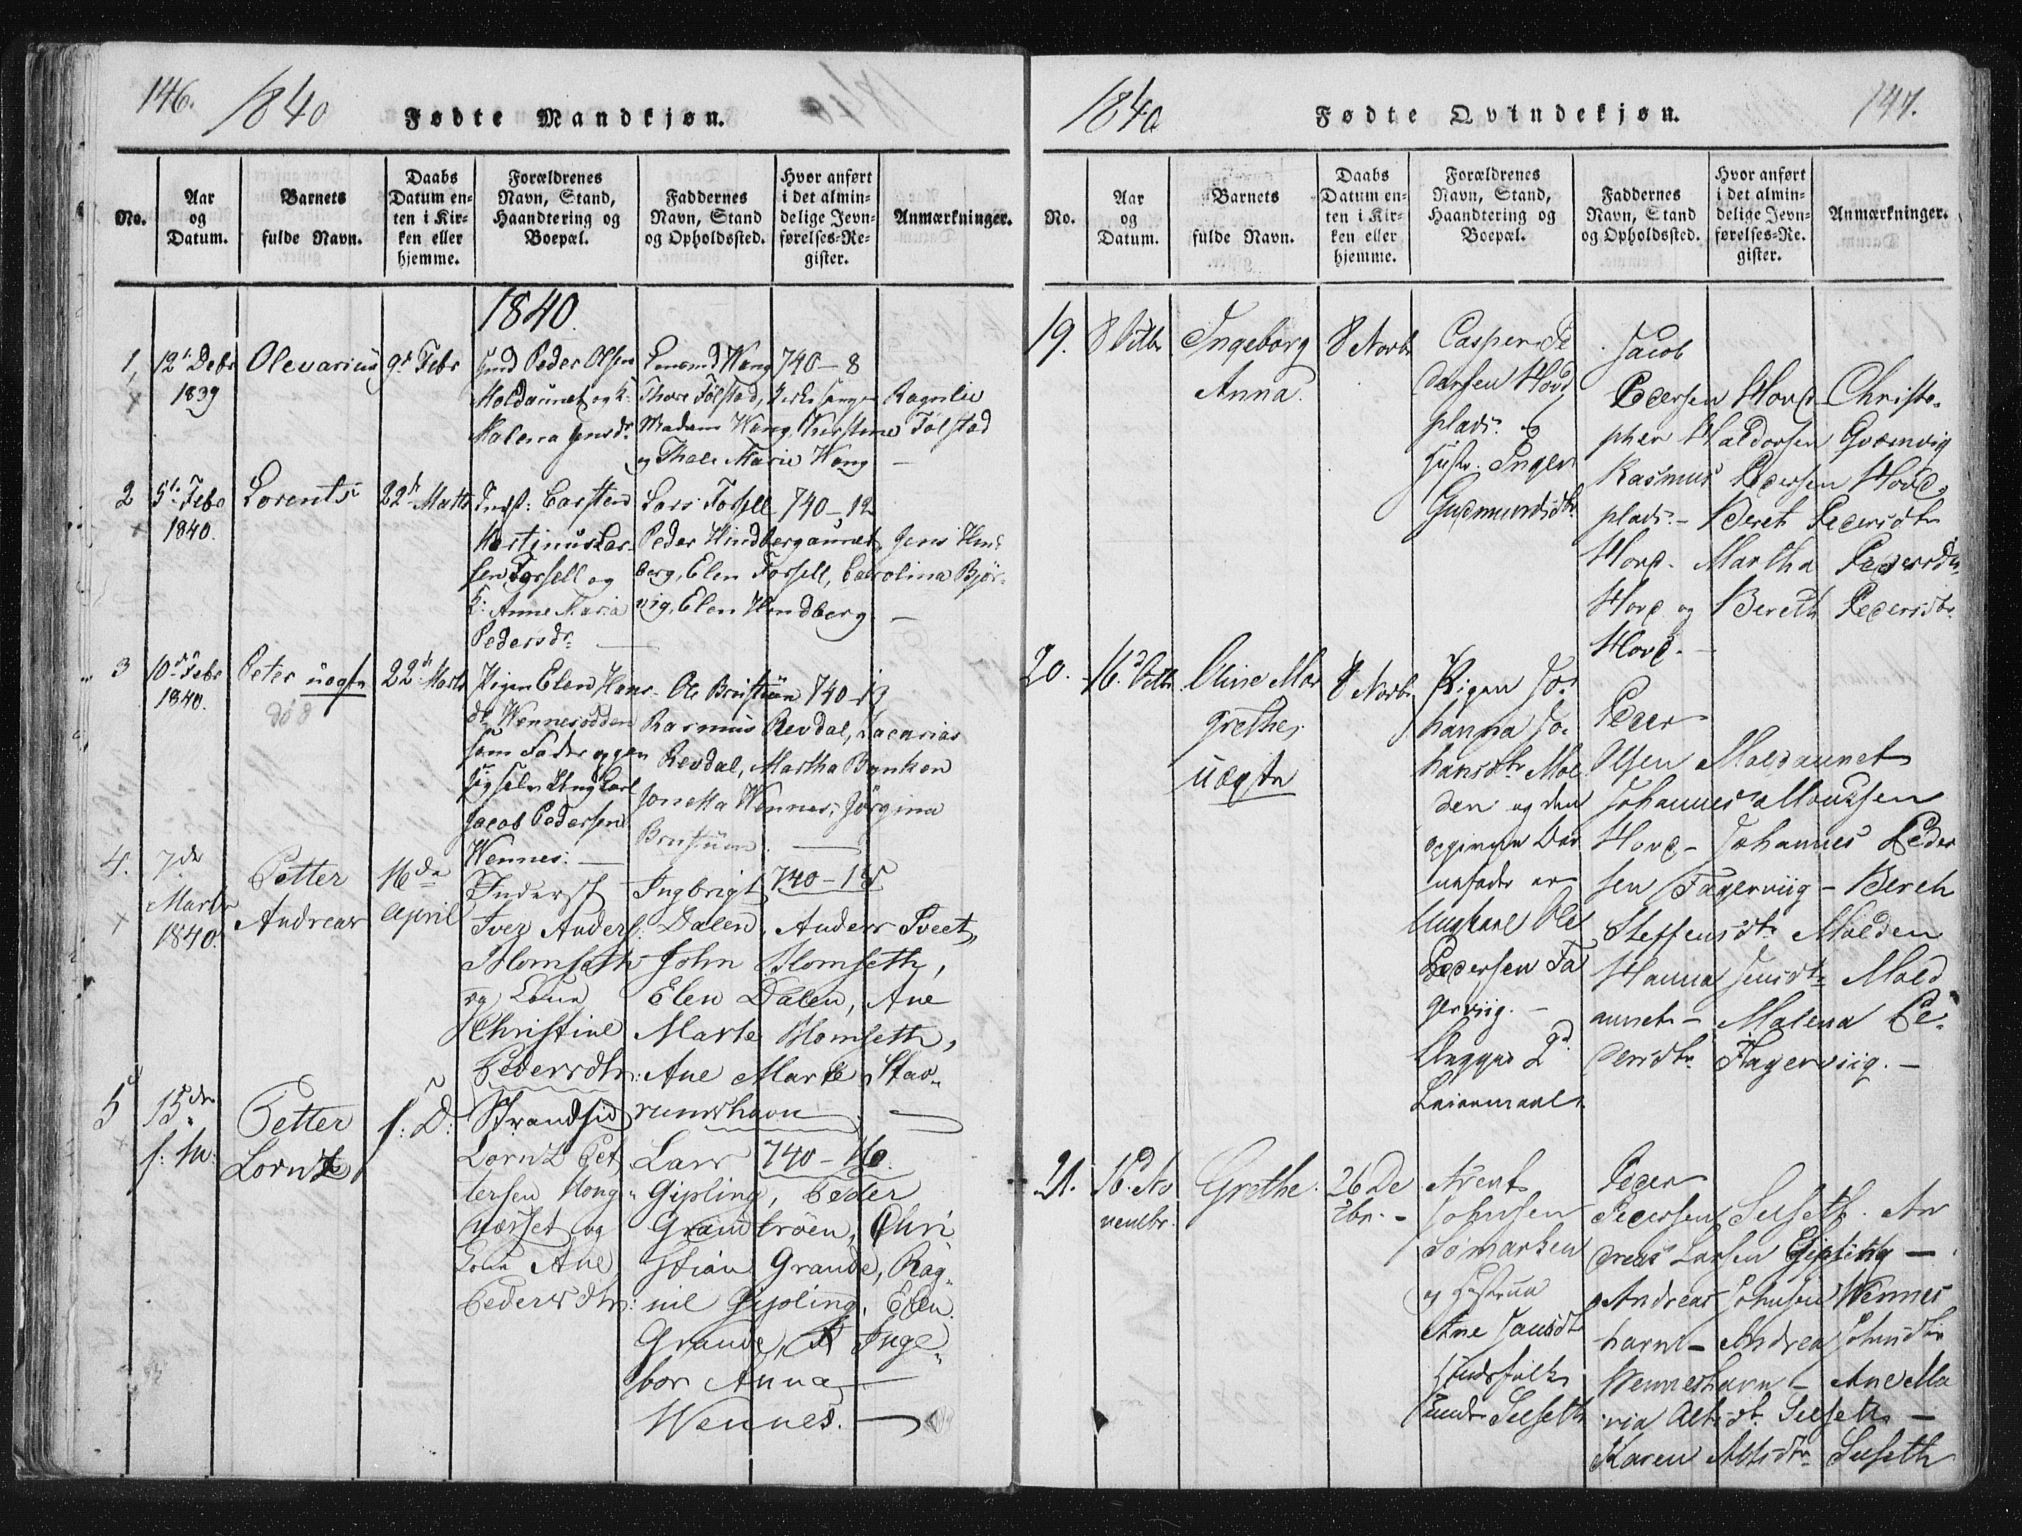 146.
1840
Fødte Mandkjøn.
No.
Aar
og
Datum.
Barnets
fulde Navn.
Daabs
Datum en-
ten i Kir-
ken eller
hjemme.
Forældrenes
Navn, Stand,
Haandtering og
Boepæl.
Faddernes
Navn, Stand
og Opholdssted.
Hvor anført
i det almin-
delige Jevn-
førelses-Re-
gister.
Anmærkninger.
1840.
1,
12t Debr
1839
Olevarius
9d Febr
Peder Olsen
Moldaunet og K:
Malena Jensdr.
Wang 740-8
Thore Følstad, Kirkesanger Ragnlie
Madam Wang, Kirstine Følstad
og Thale Marie Wang —
2
5t Febr
1840.
Lorents
22d Marts
Carsten
Martinus Lar-
sen Forsell og
K: Anne Maria
Pedersdr.
Lars Forsell 740-12
Peder Hindbergaunet, Jens Hind
berg, Elen Forsell, Carolina Bjør-
vig, Elen Hindberg. —
3
10d Febr
1840.
Peter uægte
død
22d Marts
Pigen Elen Hans
dr Wennesødden
som Fader opgen
sig selv Ungkarl
Jacob Pedersen
Wennes. —
Ole Brustuen 740-19
Rasmus Revdal, Zacarias
Revdal, Martha Bynken
Jonetta Wennes, Jørgina
Brustuen. —
4.
7de
Marts
1840.
Petter
Andreas
16de
April
Inderst
Iver Anders
Blomseth
og Kona
Christine
Pedersdtr:
Ingbrigt 740-15
Dalen, Anders Tveet,
John Blomseth,
Elen Dalen, Ane
Marte Blomseth,
Ane Marte Stav-
runshavn —
5
15de
f: M:
Petter
Lorntz
f: D:
Strandsid
Lorntz Pet
tersen Hong-
næsset og
Kona Ane
Pedersdtr:
Lars 740-16.
Gipling, Peder
Grandtrøen, Chri
stian Grande, Rag-
nil Gipling, Elen
Grande, Inge-
bor Anna —
Wennes. —
1840
Fødte Qvindekjøn.
147.
No.
Aar
og
Datum.
Barnets
fulde Navn.
Daabs
Datum en-
ten i Kir-
ken eller
hjemme.
Forældrenes
Navn, Stand,
Haandtering og
Boepæl.
Faddernes
Navn, Stand
og Opholdssted.
Hvor anført
i det almin-
delige Jevn-
førelses-Re-
gister.
Anmærkninger.
19.
8 Octbr
Ingeborg
Anna.
8 Novbr
Casper Pe
dersen Hovd
plads. og
Hustr. Inger
Gudmundsdtr
Jacob
Pedersen Hovd- Christo-
pher Haldorsen Qvamvig
Rasmus Pedersen Hovd-
plads. - Bereth Pedersdtr
Hovd- Martha Pedersdtr.
Hovd og Bereth Pedersdtr.
Hovd. —
20.
16d Octbr
Oline Mar
grethe,
uægte
8 Novbr
Pigen Jo-
hanna Jo-
hansdtr Mol
den og den
opgivne Bar
nefader er
Ungkarl Ole
Pedersen Fa
gerviig. -
Begges 2d
Leiermaal.
Peder
Olsen Moldaunet
Johannes Moussen
Hovd- Johannes Peder
sen Fagerviig - Bereth
Steffensdtr Molden
Hanna Jensdtr Mold
aunet - Malena Pe-
dersdtr Fagerviig. -
21.
16d No
vembr.
Grethe.
26 De
cbr. -
Arent
Johnsen
Sømarken
og Hustrue
Ane Jansdtr
Huusfolk
Selseth
Peder
Pedersen Selseth. An
dreas Larsen Gipling -
Andreas Johnsen Wennes
havn - Andrea Johnsdtr
Wenneshavn - Ane Ma
ria Altsdtr Selseth -
Karen Altsdtr Selseth